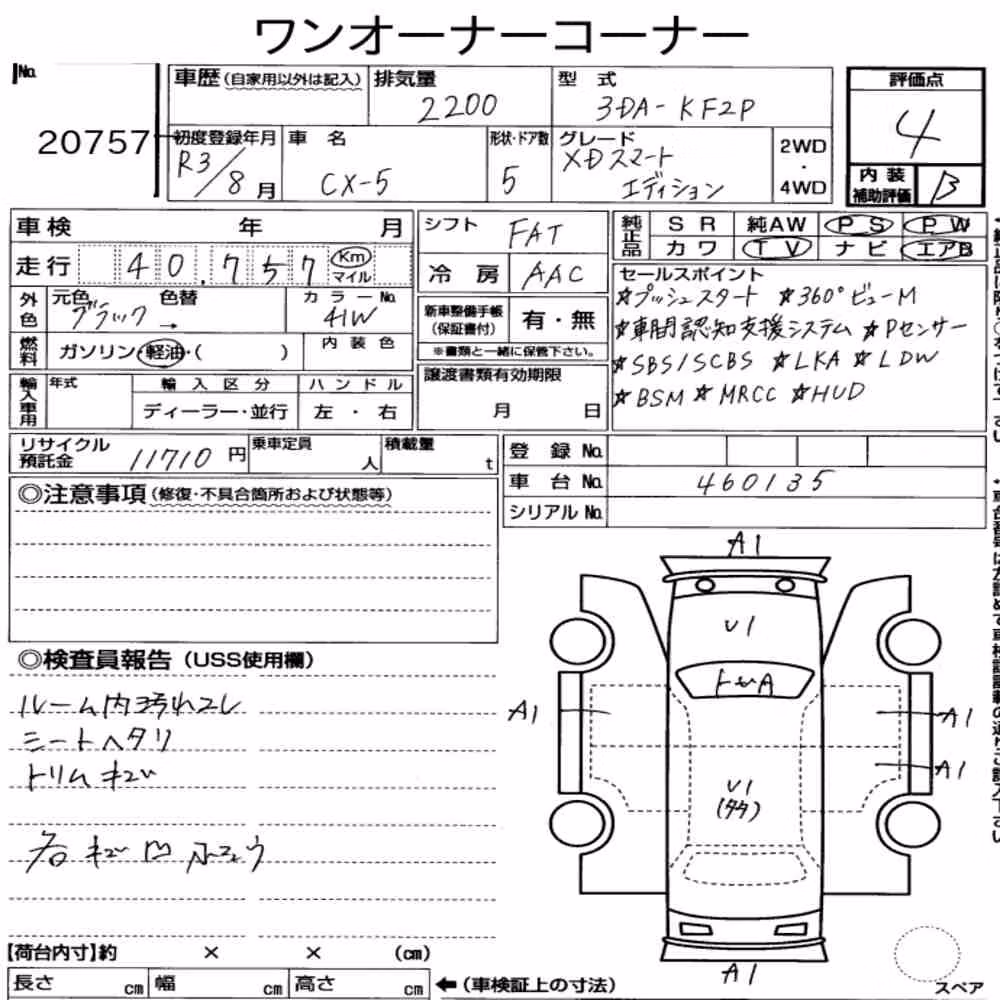 ワンオーナーコーナー
No. 20757
車歴(自家用以外は記入)
排気量 2200
型式 3DA-KF2P
初度登録年月 R3/8月
車名 CX-5
形状・ドア数 5
グレード XDスマートエディション
2WD・4WD
評価点 4
内装補助評価 B
車検 年 月
走行 40,757 Km マイル
外色 元色 ブラック → 色替
カラーNo. 41W
燃料 ガソリン・軽油・( )
内装色
輸入車用 年式
輸入区分 ディーラー・並行
ハンドル 左・右
シフト FAT
冷房 AAC
新車整備手帳(保証書付) 有・無
※書類と一緒に保管下さい。
譲渡書類有効期限 月 日
純正品 SR 純AW PS PW
カワ TV ナビ エアB
セールスポイント
☆プッシュスタート ☆360°ビューM
☆車間認知支援システム ☆Pセンサー
☆SBS/SCBS ☆LKA ☆LDW
☆BSM ☆MRCC ☆HUD
リサイクル預託金 11710円
乗車定員 人
積載量 t
登録No.
車台No. 460135
シリアルNo.
◎注意事項(修復・不具合箇所および状態等)
◎検査員報告(USS使用欄)
ルーム内汚れコレ
シートヘタリ
トリムキズ
各キズ凹
A1
U1
トビA
A1
A1
A1
U1
(タタ)
A1
【荷台内寸】約 × × (cm)
長さ cm 幅 cm 高さ cm
←(車検証上の寸法)
スペア